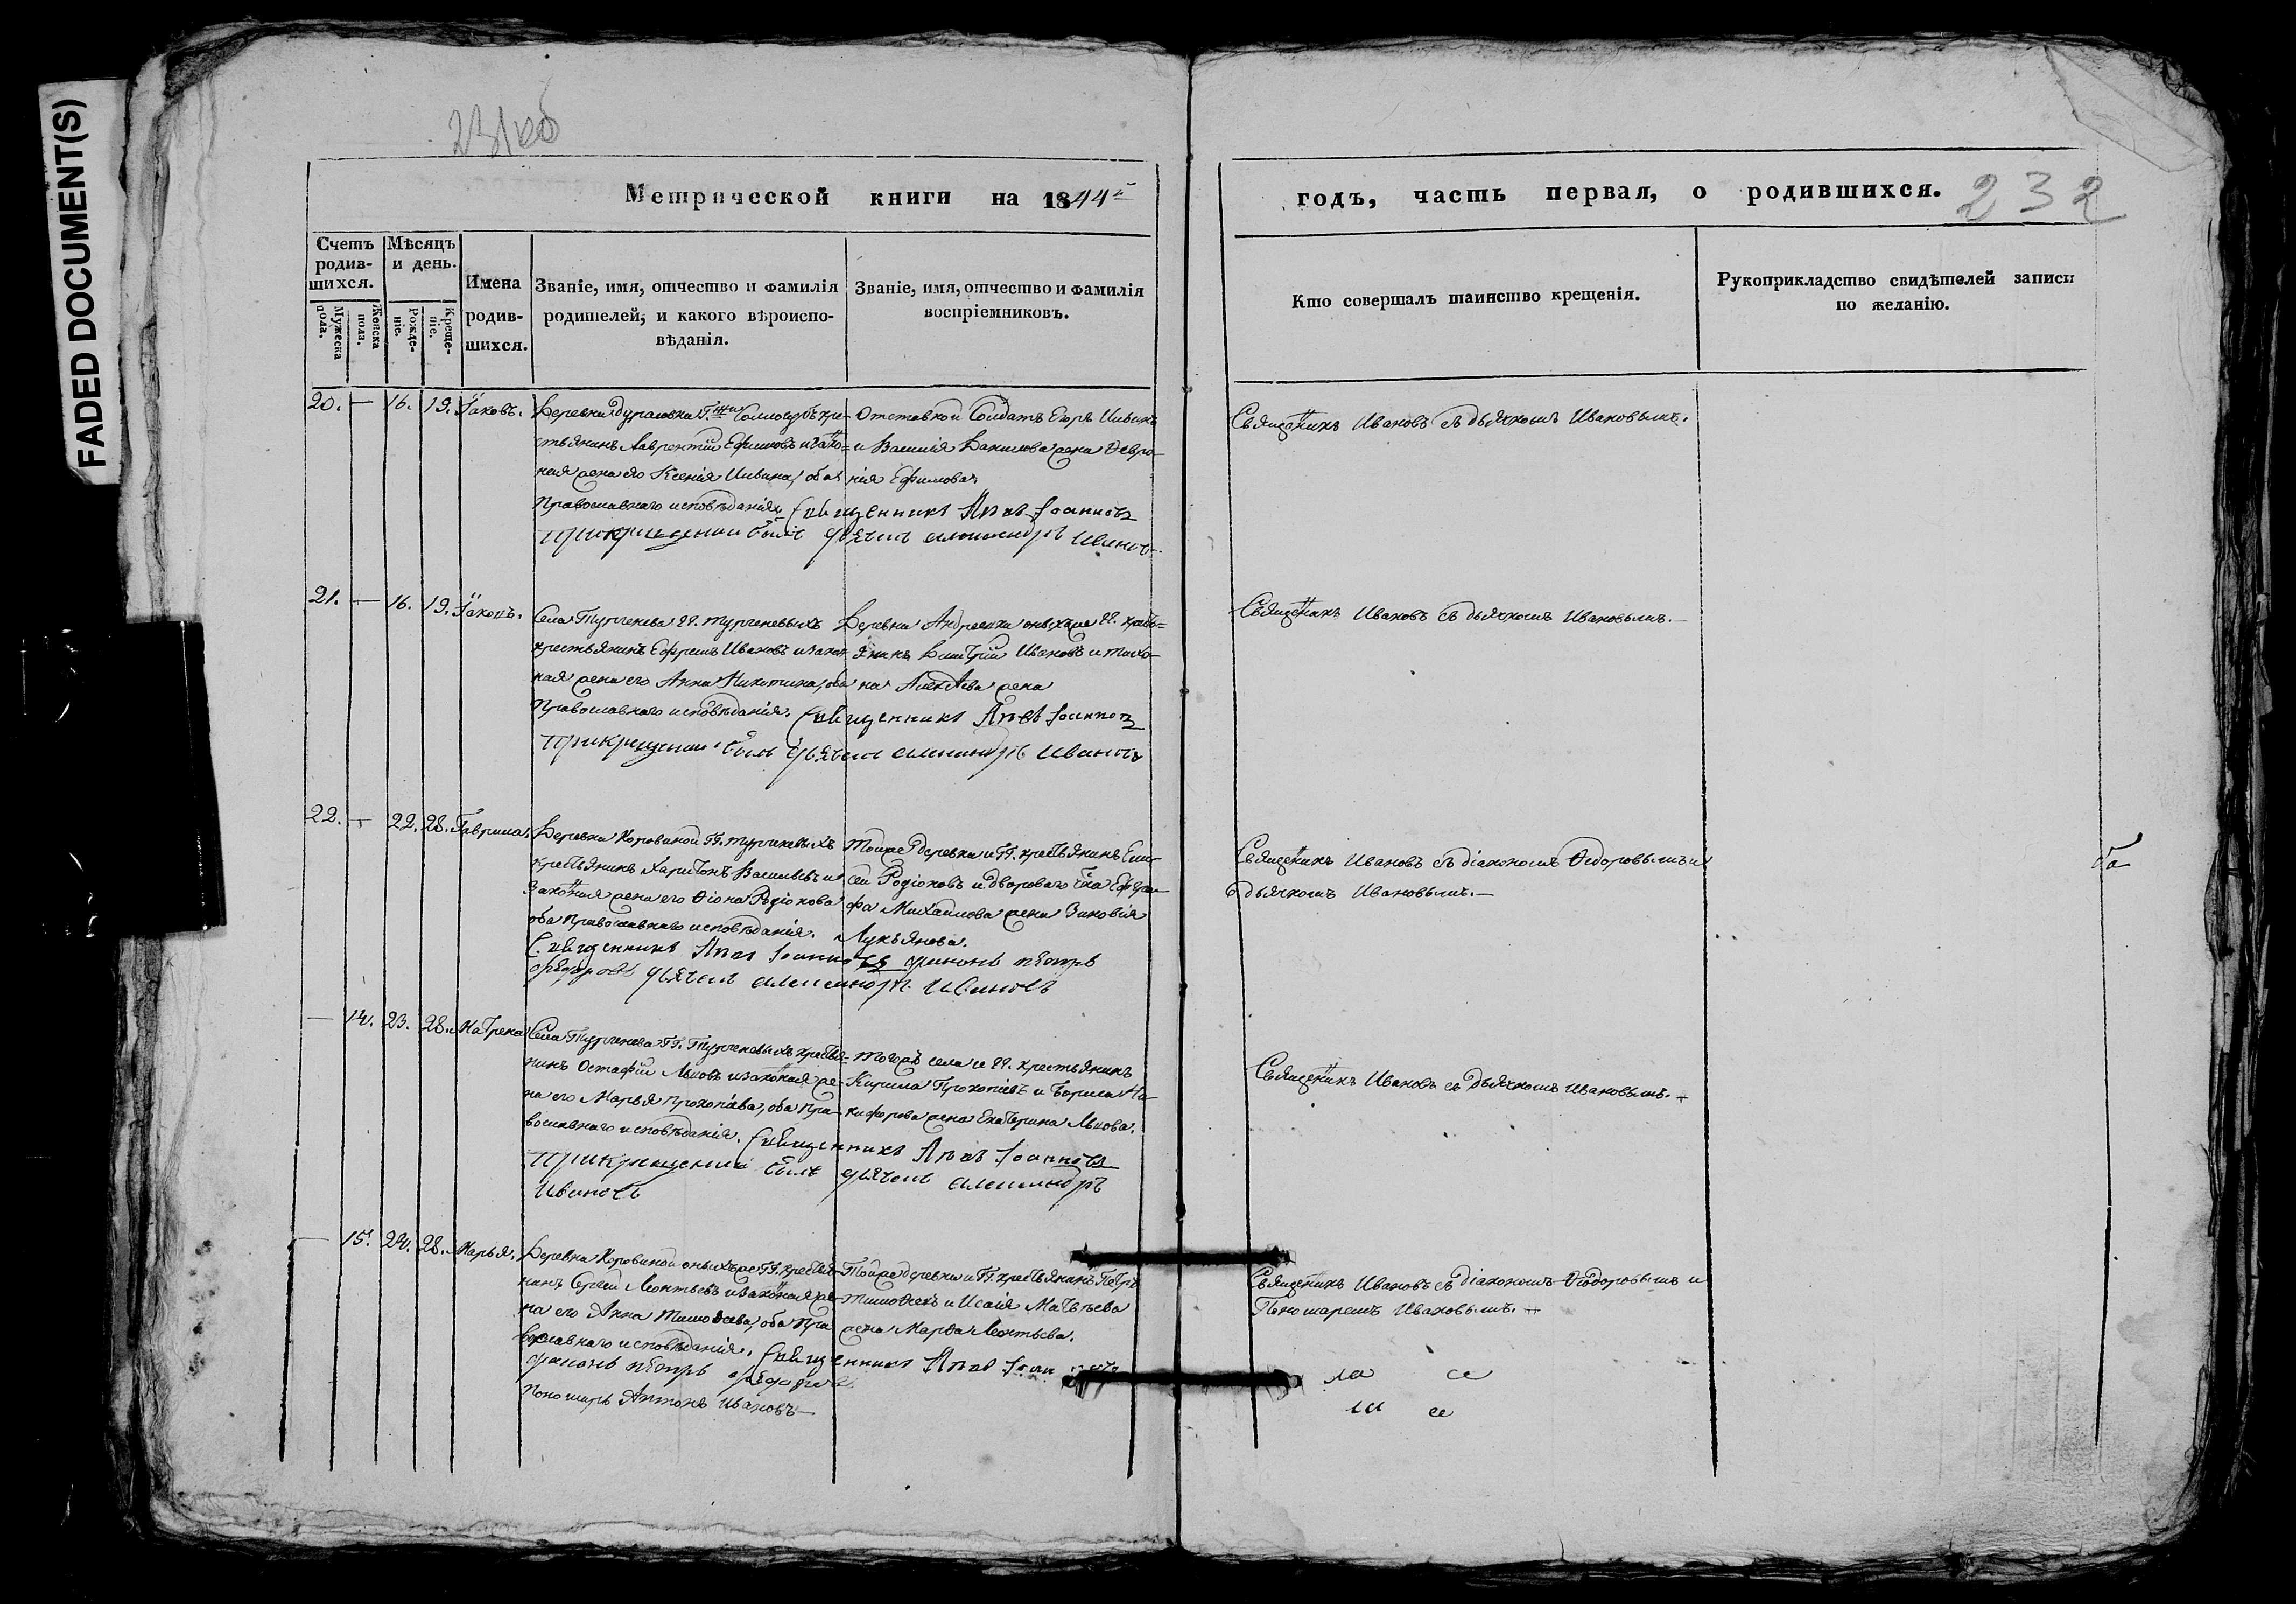 FADED DOCUMENT(S)
231об
232
Метрической книги на 1844й
годъ, часть первая, о родившихся.
Счетъ родив-
шихся.
Мужеска пола.
Женска пола.
Мѣсяцъ и день.
Рожде-
ніе.
Креще-
ніе.
Имена
родив-
шихся.
Званіе, имя, отчество и фамилія
родителей, и какого вѣроиспо-
вѣданія.
Званіе, имя, отчество и фамилія
воспріемниковъ.
Кто совершалъ таинство крещенія.
Рукоприкладство свидѣтелей записи
по желанію.
20. — 16. 19. Іаковъ.
Деревни кре-
стьянинъ Лаврентій Ефимовъ и зако=
ная жена его Ксенія Ильина, оба
Православнаго исповѣданія. Священникъ Іоанновъ
При крещеніи былъ дьячекъ Александръ Ивановъ
Отставной Солдатъ Егоръ Ильинъ
и Василія Данилова жена Февро-
нія Ефимова
Священникъ Ивановъ съ дьячкомъ Ивановымъ.
21. — 16. 19. Іаковъ.
Села Тургенева гг. Тургеневыхъ
крестьянинъ Ефремъ Ивановъ и закон-
ная жена его Анна Никитина, оба
Православнаго исповѣданія. Священникъ Іоанновъ
При крещеніи былъ дьячекъ Александръ Ивановъ
Деревни Андреевки оныхъ же гг. кресть=
янинъ Дмитрій Ивановъ и
на Алексѣева жена
Священникъ Ивановъ съ дьячкомъ Ивановымъ.—
22. — 22. 28. Гавріилъ.
Деревни Коровиной гг. Тургеневыхъ
крестьянинъ Харитонъ Васильевъ и
законная жена его Родіонова
оба Православнаго исповѣданія.
Священникъ Іоанновъ діаконъ Петръ
Федоровъ дьячекъ Александръ Ивановъ
Той же деревни и гг. крестьянинъ Ели-
сей Родіоновъ и двороваго
Михайлова жена Зиновія
Лукьянова.
Священникъ Ивановъ съ діакономъ Ѳедоровымъ и
дьячкомъ Ивановымъ.—
— 14. 23. 28. Матрена
Села Тургенева гг. Тургеневыхъ крестья-
нинъ Остафій Львовъ и законная же-
на его Марья Прокопіева, оба пра-
вославнаго исповѣданія. Священникъ Іоанновъ
При крещеніи былъ дьячекъ Александръ
Ивановъ
Тогожъ села и гг. крестьянинъ
Кирила Прокопіевъ и Бориса Ни-
кифорова жена Екатерина Львова.
Священникъ Ивановъ съ дьячкомъ Ивановымъ.—
— 15. 24. 28. Марья.
Деревни Коровиной оныхъ же гг. крестья-
нинъ Сергей Леонтьевъ и законная же-
на его Анна Тимоѳеева, оба пра-
вославнаго исповѣданія. Священникъ
діаконъ Петръ Федоровъ
Пономарь Антонъ Ивановъ—
Той же деревни и гг. крестьянинъ Петръ
Тимоѳеевъ и Исаія Матвѣева
жена Марѳа Леонтьева.
Священникъ Ивановъ съ діакономъ Ѳедоровымъ и
Пономаремъ Ивановымъ.—